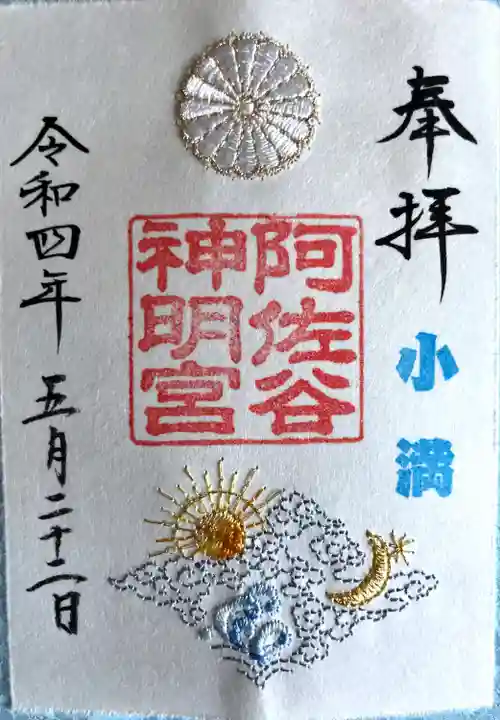 奉拝
小満
阿佐谷
神明宮
令和四年 五月二十二日